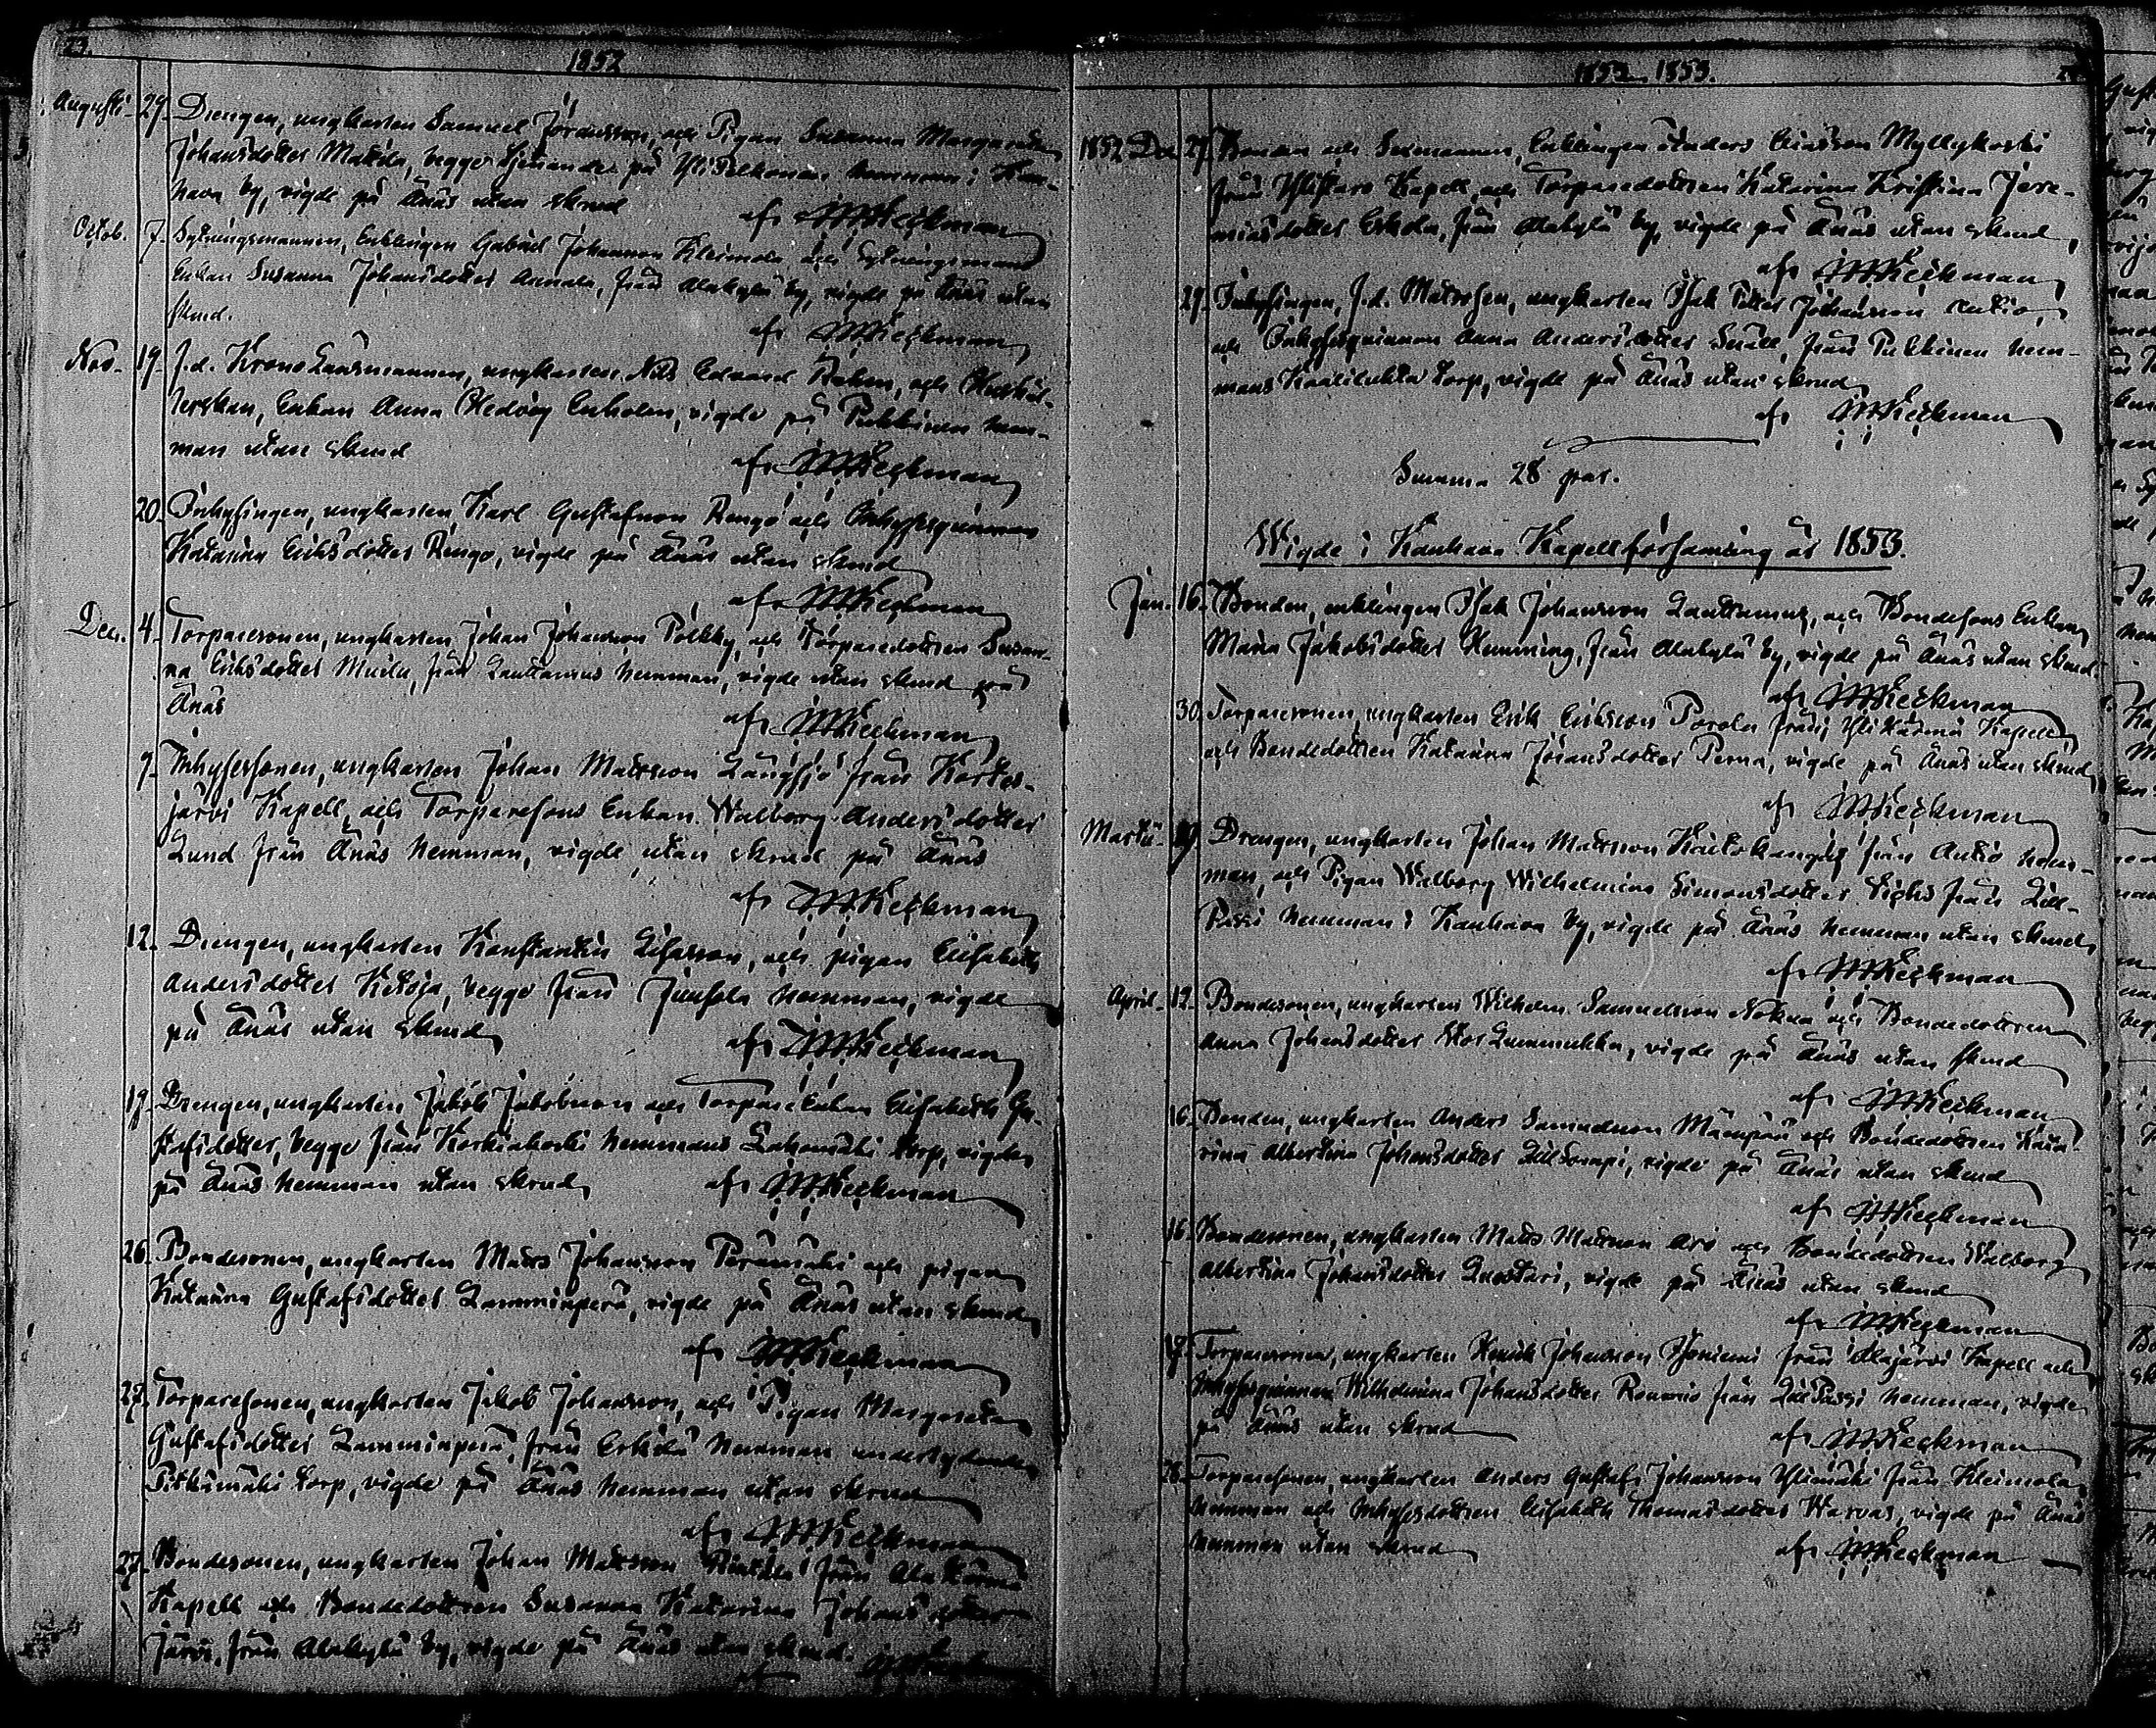 1852
Augusti 29. Drengen, ungkarlen Samuel och Pigan Susanna Margareta
Johansdotter Mattila, begge tjenande på hemman i Kau-
hava by, vigde på Ånäs utan skrud
af JMKeckman
Octob. 7. Sytningsmannen, Enklingen Gabriel Johansson Kleimola och Sytningsmans
Enkan Susanna Johansdotter Annala, från Alakylä by, vigde på Ånäs utan
skrud.
af JMKeckman
Nov. 19. Länsmannen, ungkarlen Nils Eduard och
Enkan Anna Hedvig Enholm, vigde på Pukkinen hem-
man utan skrud
af JMKeckman
20. Inhysingen, ungkarlen Karl Gustafsson Rengo och Inhysesqvinnan
Katarina Eriksdotter Rengo, vigde på Ånäs utan skrud
af JMKeckman
Dec. 4. Torparesonen, ungkarlen Johan Johansson Pölkky, och Torparedottren Susan-
na Eriksdotter från Lauttamus hemman, vigde utan skrud på
Ånäs
af JMKeckman
Inhysessonen, ungkarlen Johan Matsson Långsjö från Kortes-
järvi Kapell, och Torparesons Enkan Walborg Andersdotter
Lund från Ånäs hemman, vigde utan skrud på Ånäs
af JMKeckman
12. Drengen, ungkarlen Konstantin och pigan Elisabeth
Andersdotter Ketoja, begge från Jussila hemman, vigde
på Ånäs utan skrud
af JMKeckman
19. Drengen, ungkarlen Jakob Jakobsson och Torpare Enkan Elisabeth Gu-
stafsdotter, begge från Korkiakoski hemmans torp, vigde
på Ånäs hemman utan skrud af JMKeckman
26. Bondesonen, ungkarlen Matts Johansson Perämäki och pigan
Katarina Gustafsdotter Lamminperä, vigde på Ånäs utan skrud
af JMKeckman
27. Torparesonen, ungkarlen Jakob Johansson, och Pigan Margareta
Gustafsdotter Lamminperä, från hemman underlydande
Pitkämäki torp, vigde på Ånäs hemman utan skrud
af JMKeckman
27. Bondesonen, ungkarlen Johan Matsson Rintala från Alahärmä
Kapell och Bondedottren Susanna Katarina Johansdotter
Järvi, från Alakylä by, vigde på Ånäs utan skrud.
af
1852 1853.
1852 Dec. 27. Bonden och Sexmannen, Enklingen Anders Eliasson Myllykoski
från Ylistaro Kapell och Torparedottren Katarina Kristina Jere-
miasdotter Eskola, från Alakylä by, vigde på Ånäs utan skrud,
af JMKeckman
29. Inhysingen, f.d. Matrosen, ungkarlen Isak Petter Johansson Autio,
och Inhysesqvinnan Anna Andersdotter Snäll, från Pukkinen hem-
mans torp, vigde på Ånäs utan skrud
af JMKeckman
Summa 28 par.
Wigde i Kauhava Kapellförsamling år 1853.
Jan. 16. Bonden, enklingen Isak Johansson Lauttamus, och Bondesons Enkan
Maria Jakobsdotter Hemming, från Alakylä by, vigde på Ånäs utan skrud.
af JMKeckman
30. Torparesonen, ungkarlen Erik Eriksson Porola från Ylihärmä Kapell,
och Bondedottren Katarina Johansdotter Perna, vigde på Ånäs utan skrud
af JMKeckman
Martii Drengen, ungkarlen Johan Matsson från Autio hem-
man, och Pigan Walborg Wilhelmina Simonsdotter från Lill-
Passi hemman i Kauhava by, vigde på Ånäs hemman utan skrud,
af JMKeckman
April 12. Bondesonen, ungkarlen Wilhelm Samuelsson och Bondedottren
Anna Johansdotter vigde på Ånäs utan skrud
af JMKeckman
16. Bonden, ungkarlen Anders Samuelsson Mäenpää och Bondedottren Kata-
rina Albertina Johansdotter vigde på Ånäs utan skrud
af JMKeckman
16. Bondesonen, ungkarlen Matts Matsson och Bondedottren Walborg
Albertina Johansdotter vigde på Ånäs utan skrud
af JMKeckman
17. Torparesonen, ungkarlen Henrik Johansson från Alajärvi Kapell och
Inhysesqvinnan Wilhelmina Johansdotter från LillPassi hemman, vigde
på Ånäs utan skrud
af JMKeckman
Torparesonen, ungkarlen Anders Gustaf Johansson Ylimäki från Kleimola
hemman och Inhysesdottren Elisabeth Thomasdotter Warvas, vigde på Ånäs
hemman utan skrud
af JMKeckman